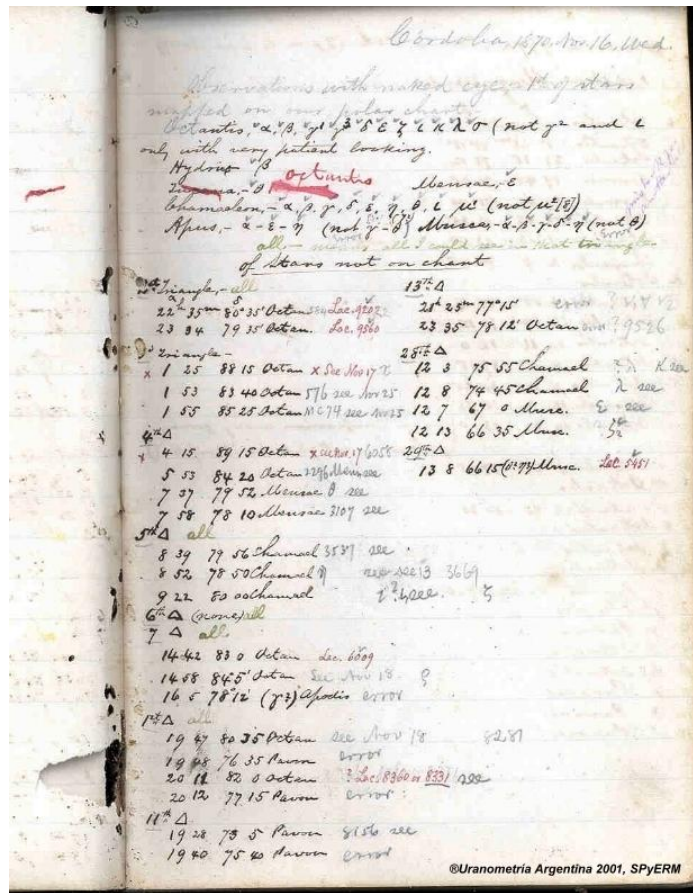 Cordoba, 1870. Nov. 16. Wed.
Observations with naked eye - 1st of stars
mapped on our polar chart.
Octantis, α, β, γ¹ γ³ δ ε ζ ι κ λ σ (not γ² and ι
only with very patient looking.
Hydrus β
octantis
Mensae, - ε
Chamaeleon, - α, β, γ, δ, ε, η, θ, ι,
Apus, - α - ε - η (not γ - δ) Muscae, - α - β - γ - δ - η (not θ)
error
all, - means all I could see in that triangle
of Stars not on chart
Triangle, - all
22 35 80 35 Octan Lac. 9202
23 34 79 35 Octan. Lac. 9560
Triangle -
x 1 25 88 15 Octan x See Nov 17
1 53 83 40 Octan 576 see Nov 25
1 55 85 25 Octan MC 74 see Nov 25
4th Δ
x 4 15 89 15 Octan x see Nov. 17 6058
5 53 84 20 Octan 2296 Mensae see
7 37 79 52 Mensae θ see
7 58 78 10 Mensae 3107 see
5th Δ all
8 39 79 56 Chamael 3537 see
8 52 78 50 Chamael η see see 13 3669
9 22 80 00 Chamael see. ζ
6th Δ (none) all
7 Δ all
14 42 83 0 Octan Lac. 6009
14 58 84 5' Octan See Nov 18.
16 5 78° 12' (γ?) Apodis error
Δ all
19 47 80 35 Octan see Nov 18 8281
19 48 76 35 Pavon error
20 11 82 0 Octan ? Lac. 8360 or 8331 see
20 12 77 15 Pavon error
11th Δ
19 28 73 5 Pavon 8156 see
19 40 75 40 Pavon error
13th Δ
21h 25m 77° 15' error
23 35 78 12' Octan 9526
28th Δ
12 3 75 55 Chamael see
12 8 74 45 Chamael λ see
12 7 67 0 Musc. ε see
12 13 66 35 Musc.
29th Δ
13 8 66 15 Musc. Lac. 5451
©Uranometría Argentina 2001, SPyERM